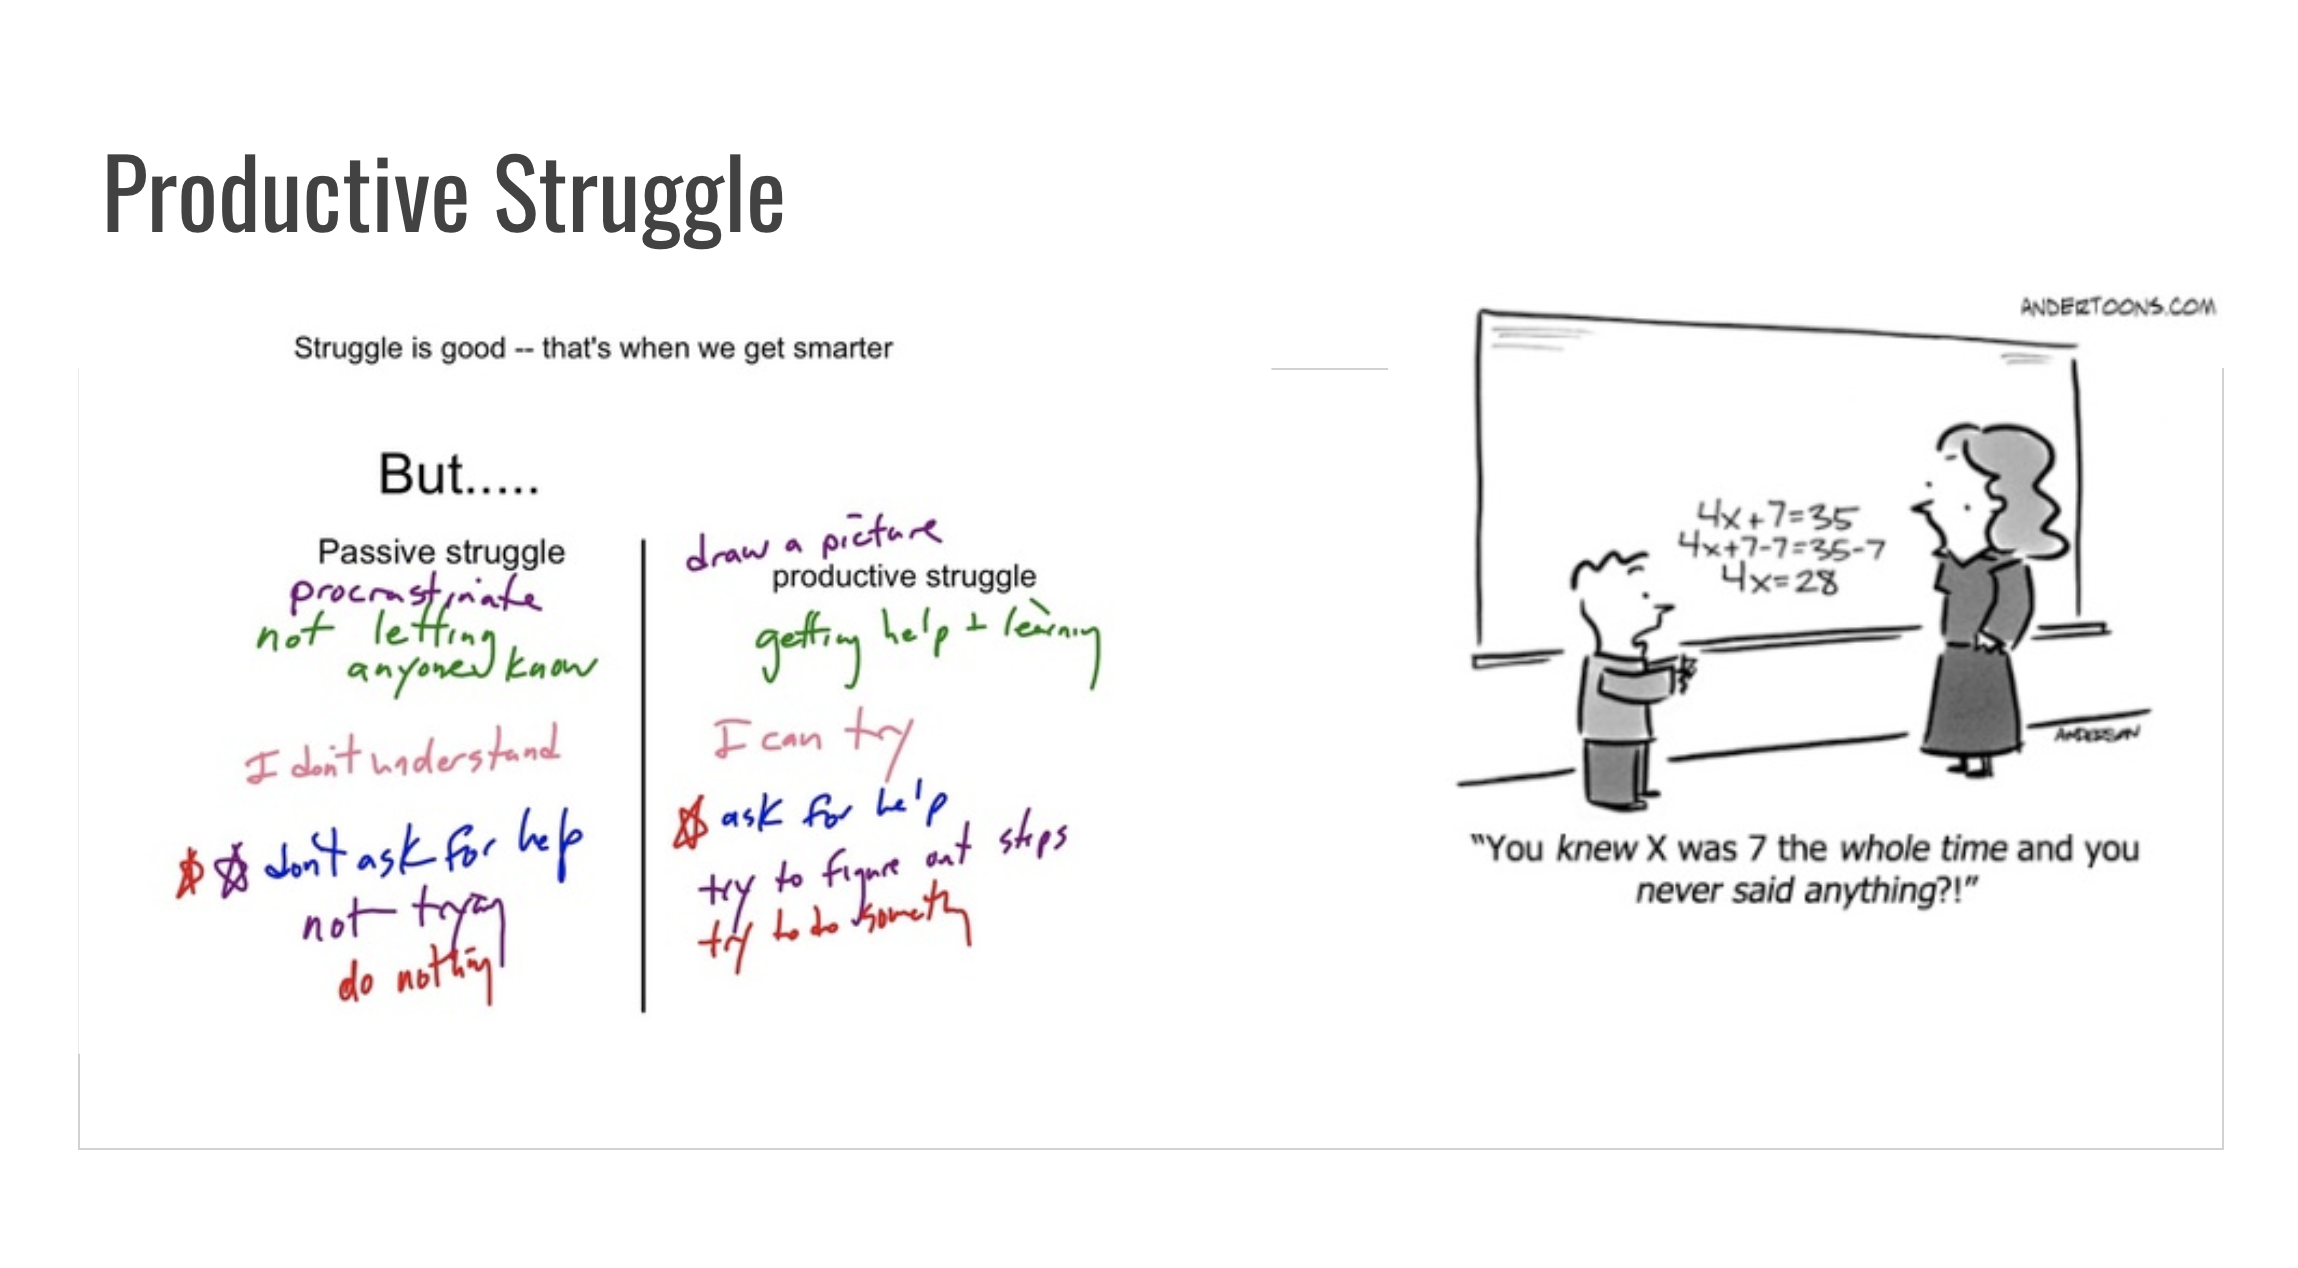 Productive Struggle
Struggle is good -- that's when we get smarter
But.....
Passive struggle
procrastinate
not letting
anyone know
I don't understand
don't ask for help
not trying
do nothing
draw a picture
productive struggle
getting help + learning
I can try
ask for help
try to figure out steps
try to do someth
ANDERTOONS.COM
4x+7=35
4x+7-7=35-7
4x=28
ANDERSON
"You knew X was 7 the whole time and you
never said anything?!"